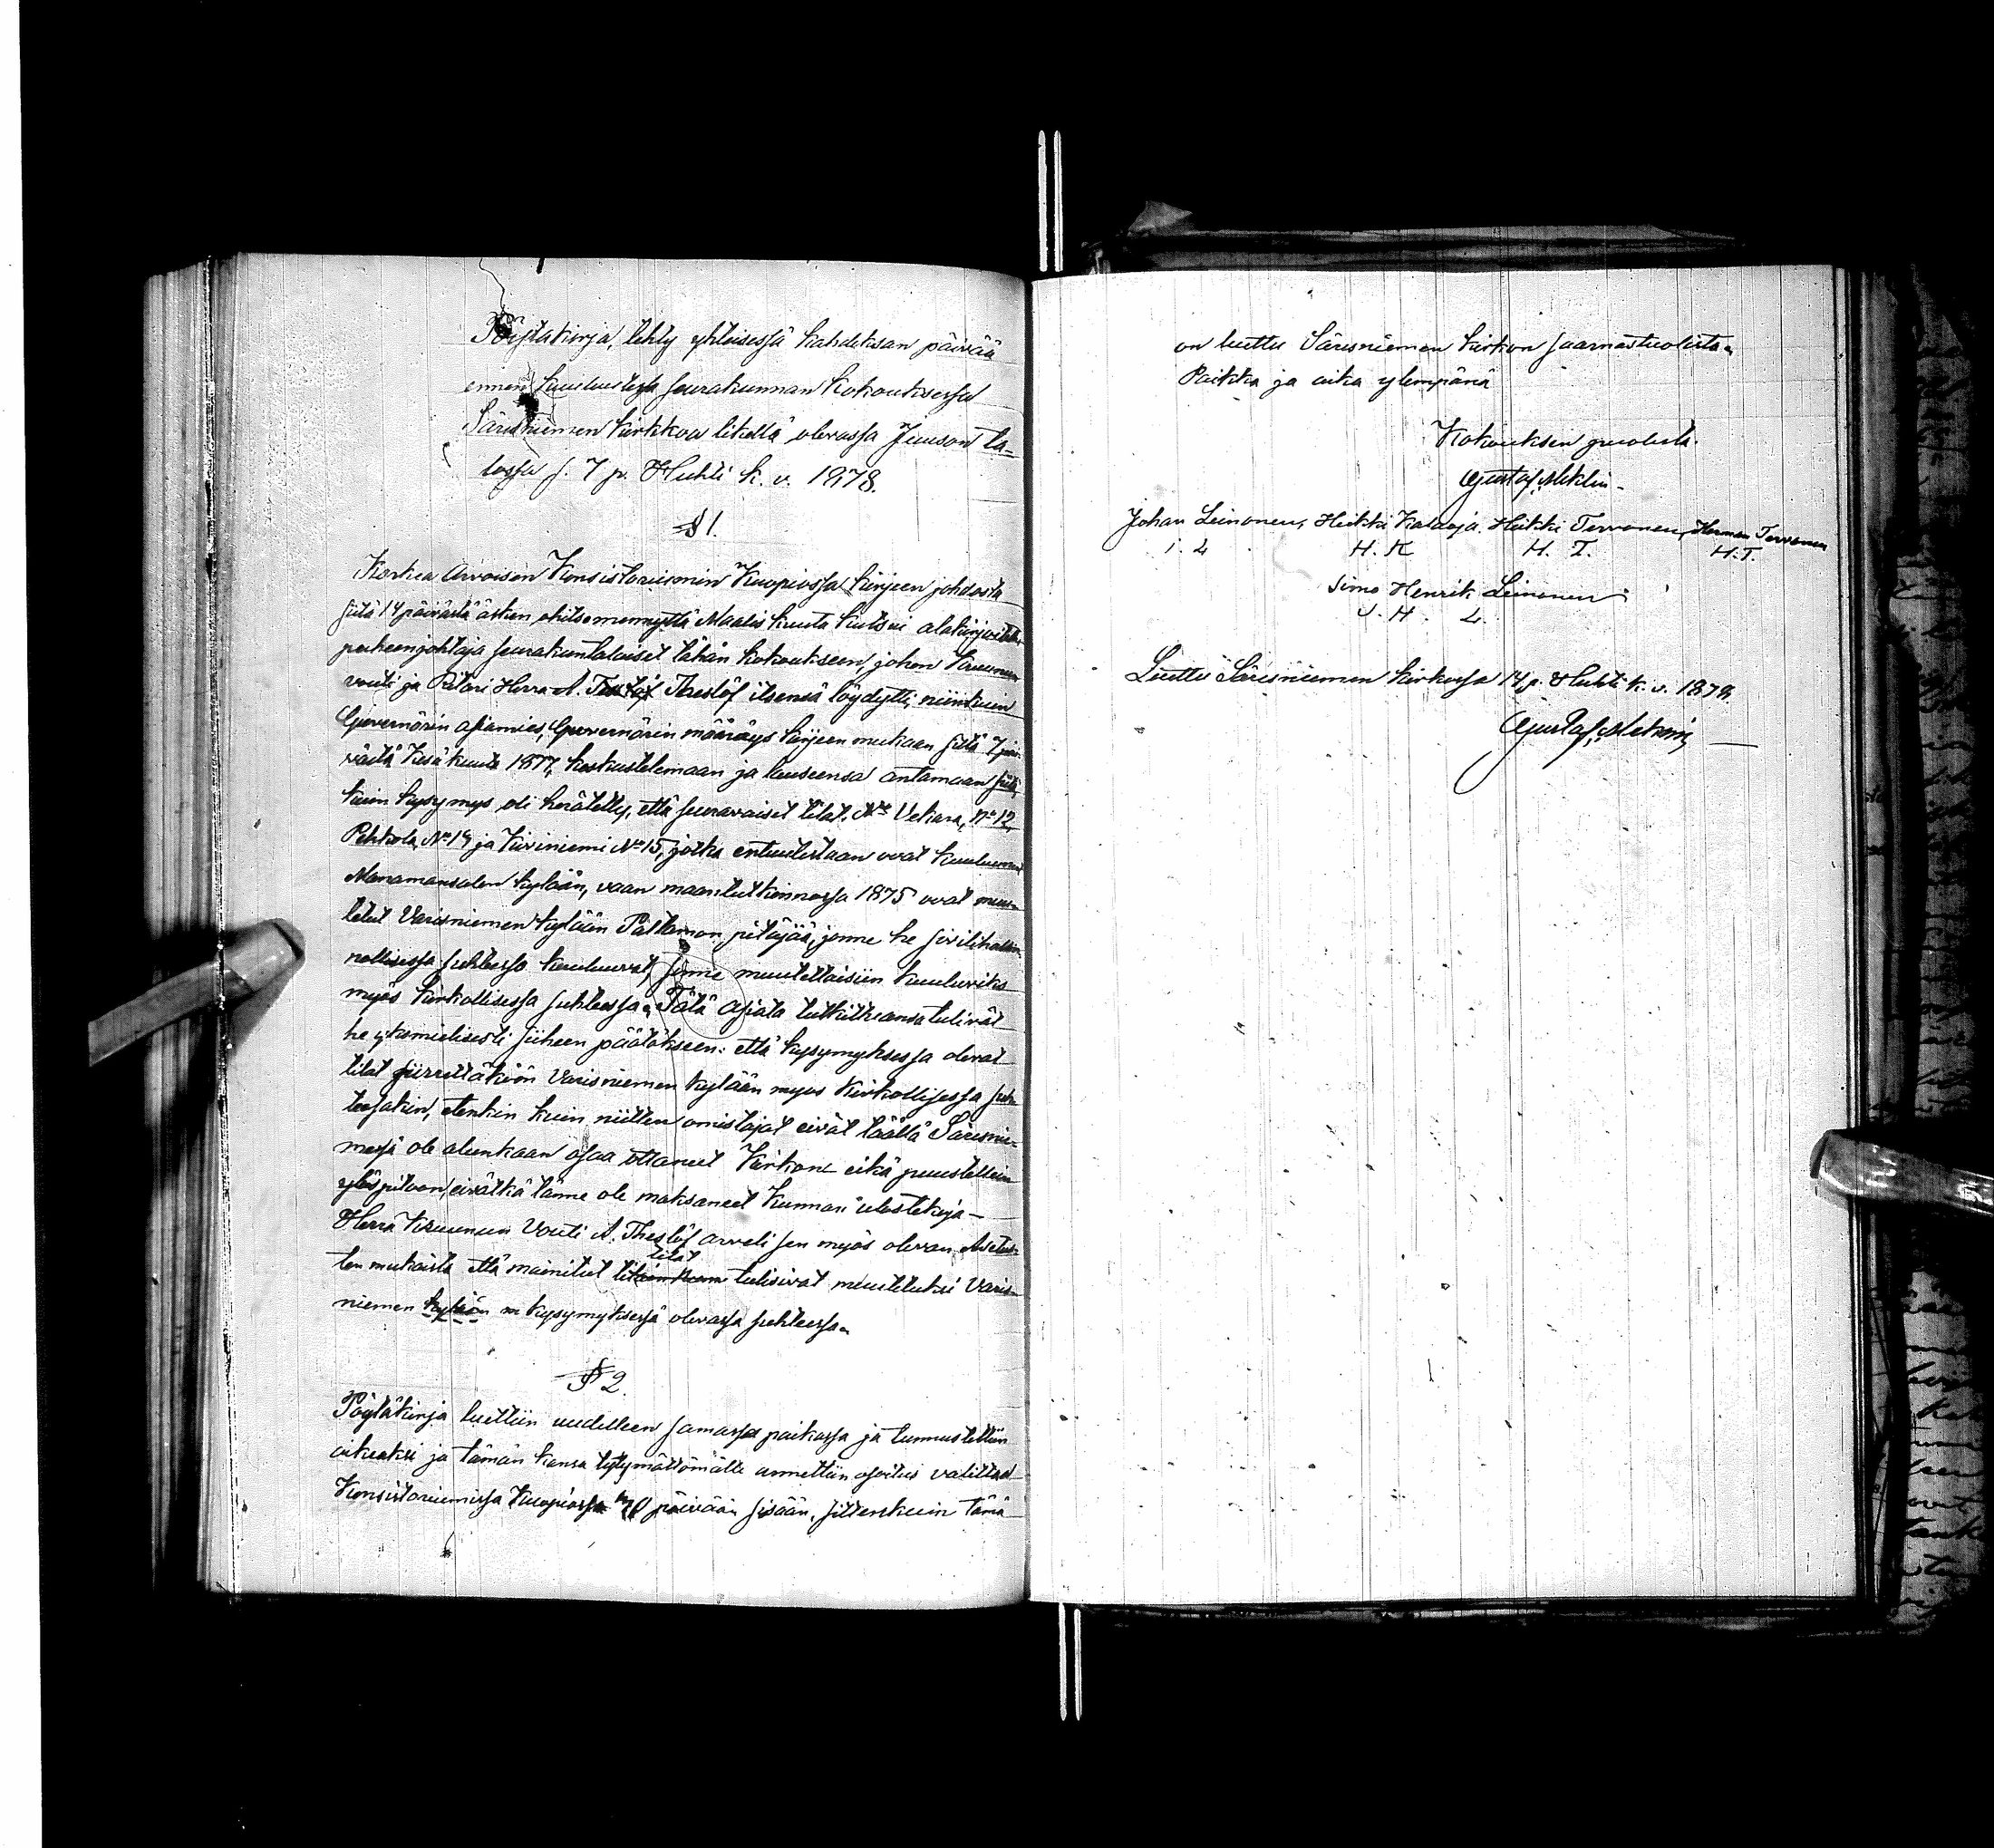 Pöytäkirja, tehty yhteisessä kahdeksan päivää
ennen kuulutetussa seurakunnan Kokouksessa
Säresniemen kirkkoa likellä olevassa Juuson ta-
lossa s. 7 p. Huhti k. v. 1878.
§ 1.
Korkea Arvoisen Konsistoriumin Kuopiossa kirjeen johdosta
siitä 14 päivästä äsken ohitsemennyttä Maalis kuuta kutsui alakirjoittanut
puheenjohtaja seurakuntalaiset tähän kokoukseen, johon kruunun
vouti ja Ritari Herra A. Theslöf itsensä löydytti, niinkuin
Guvernörin asiamies, Guvernörin määräys kirjeen mukaan siitä 7 päi-
västä Kesäkuuta 1877, keskustelemaan ja lauseensa antamaan siitä,
kuin kysymys oli herätetty, että seuravaiset tilat: Vekara, No 12,
Pehkola, No 14 ja Kiviniemi No 15, jotka entuutestaan ovat kuuluneet
Manamansalon kylään, vaan maantutkinnossa 1875 ovat muu-
tetut Varisniemen kylään Paltamon pitäjää, jonne he sivilihallin-
nollisessa suhteessa kuuluuvat, sinne muutettaisiin kuuluviksi
myös kirkollisessa suhteessa. Tätä asiata tutkittuansa tulivat
he yksimielisesti siiheen päätökseen: että kysymyksessä olevat
tilat siirrettäköön Varisniemen kylään myös kirkollisessa suh-
teessakin, etenkin kuin niitten omistajat eivät täällä Säresnie-
messä ole alunkaan osaa ottaneet Kirkon eikä puustellein
ylöspitoon, eivätkä tänne ole maksaneet kunnan ulostekoja —
Herra Kruunun Vouti A. Theslöf arveli sen myös olevan Asetus-
ten mukaista että mainitut tilat tulisivat muutetuksi Varis-
niemen kylään kysymyksessä olevassa suhteessa.
§ 2.
Pöytäkirja luettiin uudelleen samassa paikassa ja tunnustettiin
oikeaksi ja tämän kansa tytymättömälle annettiin osoitus valittaa
Konsistoriumissa Kuopiossa 30 päivään sisään, sittenkuin tämä
on luettu Säresniemen kirkon saarnastuolista.
Paikka ja aika ylempänä
Kokouksen puolesta.
Gustaf Meklin
Johan Leinonen, Heikki Kalaoja. Heikki Tervonen, Herman Tervonen
I. L H. K H. T. H. T.
Simo Henrik Leinonen
S. H. L.
Luettu Säresniemen kirkossa 14 p. Huhti k. v. 1878.
Gustaf Meklin